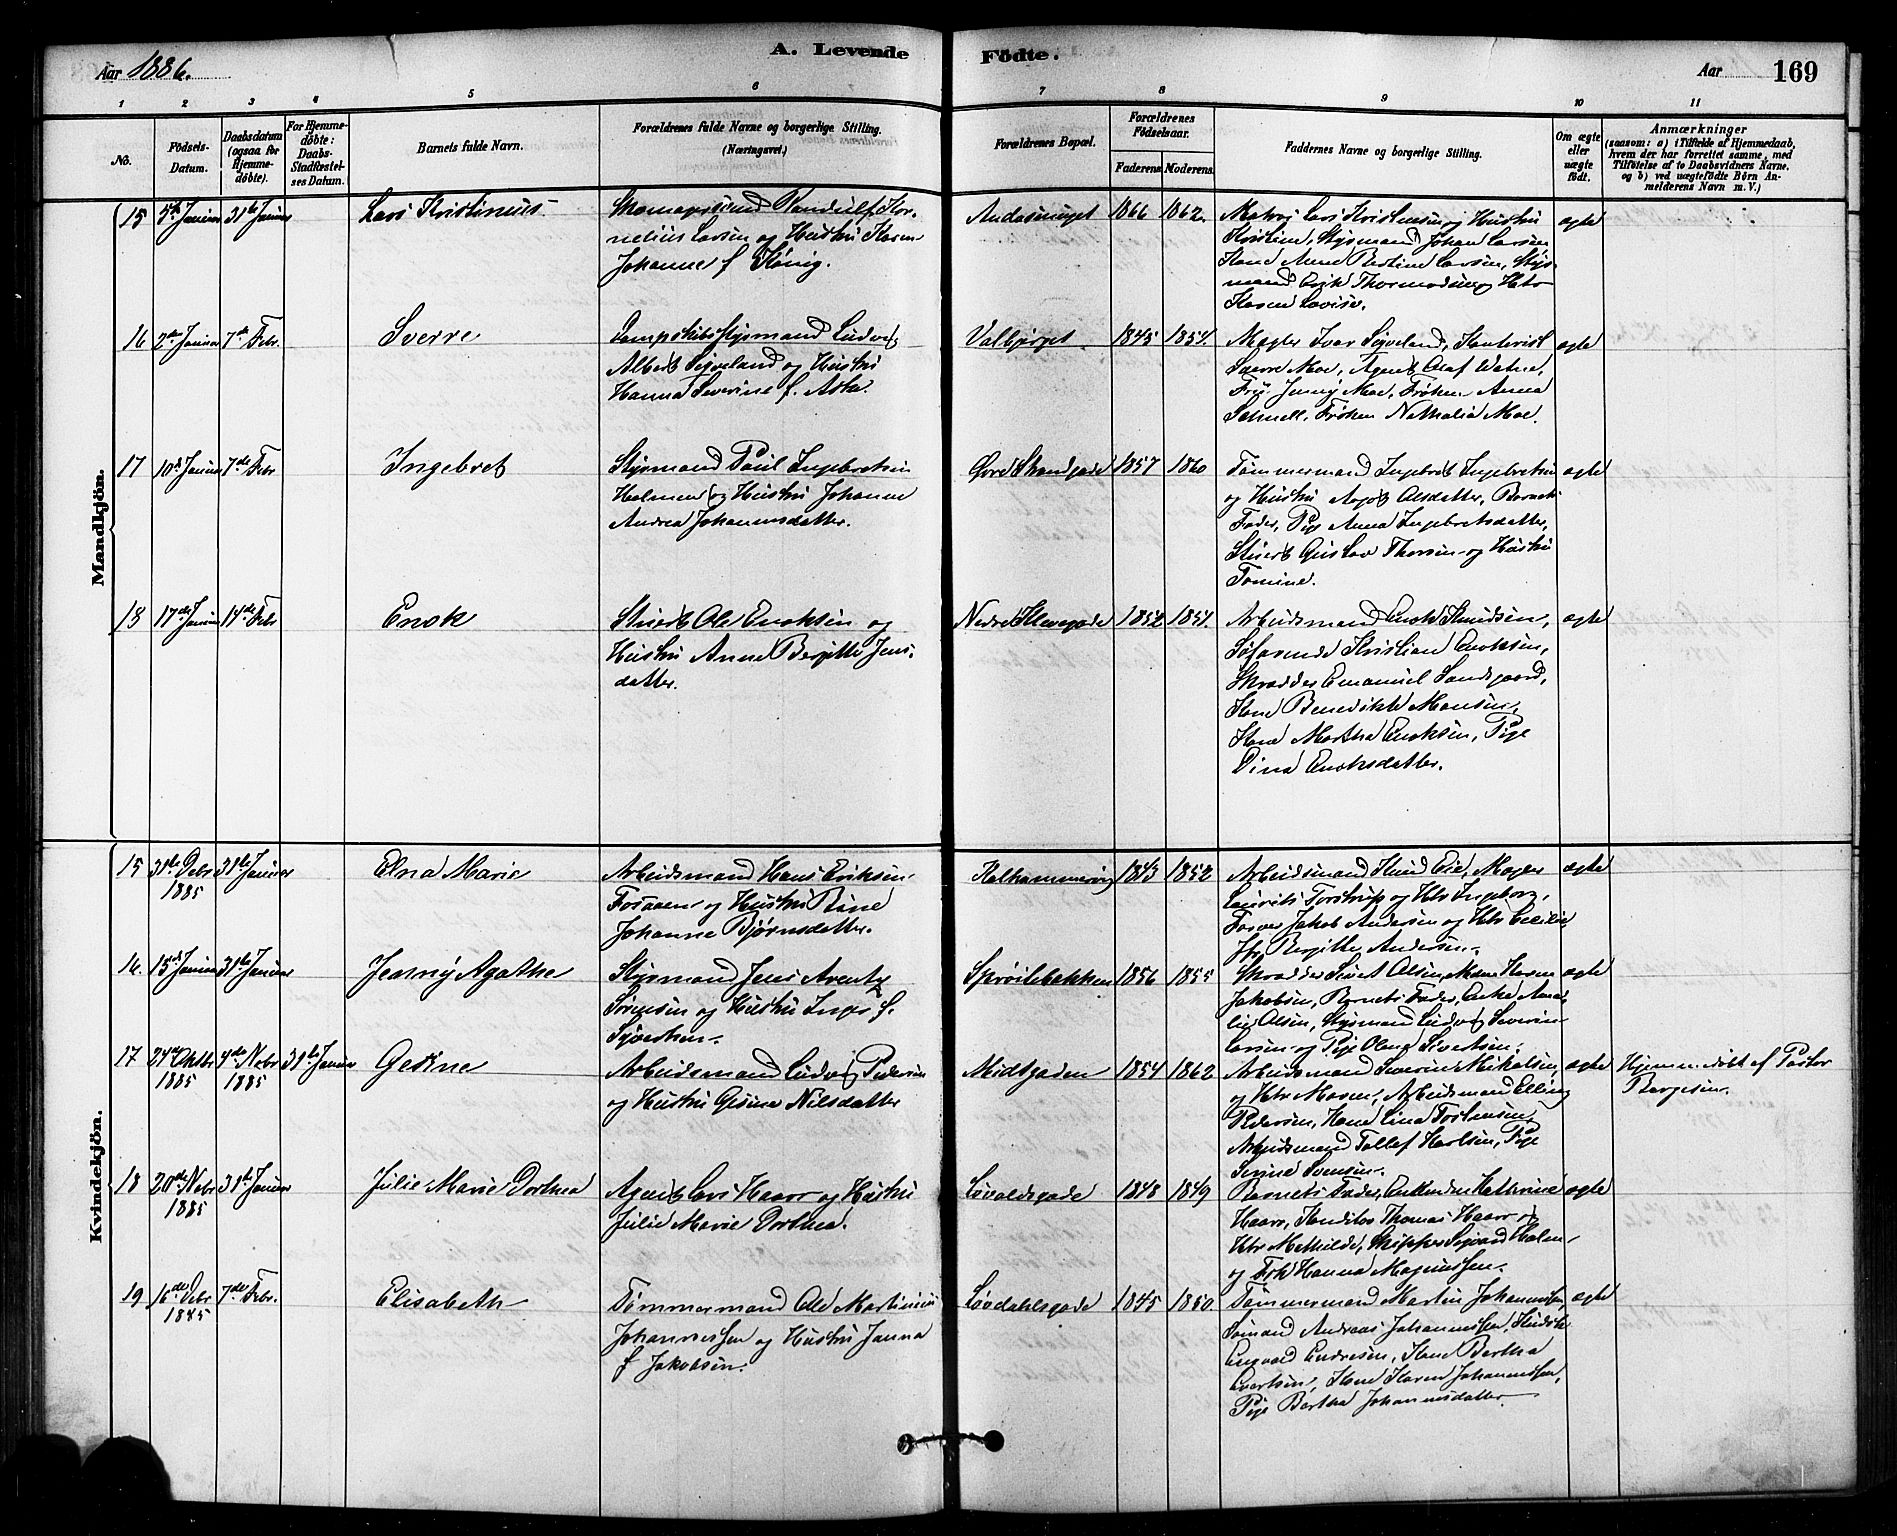 Aar 1886.
A. Levende
Födte.
Aar
169
1 2 3 4 5 6 7 8 9 10 11
No.
Födsels-Datum.
Daabsdatum (ogsaa for Hjemme-döbte).
For Hjemme-döbte: Daabs-Stadfæstel-ses Datum.
Barnets fulde Navn.
Forældrenes fulde Navne og borgerlige Stilling. (Næringsvei.)
Forældrenes Bopæl.
Forældrenes Födselsaar.
Faderens Moderens.
Faddernes Navne og borgerlige Stilling.
Om ægte eller uægte födt.
Anmærkninger
(saasom: a) i Tilfælde af Hjemmedaab, hvem der har forrettet samme, med Tilföielse af to Daabsvidners Navne. og b) ved uægtefödte Börn An-melderens Navn m. V.)
Mandkjön.
15 31te Januar
Lars Kristinius
Larsen og Hustru Karen
Johanne f. König.
1866 1862
Matros Lars Kristensen og Hustru
Kristine, Styrmand Johan Larsen
Kone Anne Bertine Larsen, Styr-
mand Erik Thormodsen og Hstr
Karen Lovise.
ægte
16 7de Febr.
Sverre
Dampskibsstyrmand Ludvig
Albert Sigveland og Hustru
Hanna Severine f. Ask.
Valbjerget 1845 1854.
Mægler Ivar Sigveland, Kontorist
Sverre Moe, Agent Olaf Watne,
Frk Jenny Moe, Frøken Anna
Schnell, Frøken Nathalia Moe.
ægte
17 10de Januar 7de Febr
Ingebret
Styrmand Paul Ingebretsen
Holmen og Hustru Johanne
Andrea Johannesdatter.
Øvre Strandgade 1857 1860
Tømmermand Ingebret Ingebretsen
og Hustru Olsdatter, Barnets
Fader, Pige Anna Ingebretsdatter,
Stuert Gustav Thorsen og Hustru
Tomine.
ægte
18 17de Januar 14de Febr
Enok
Stuert Ole Enoksen og
Hustru Anne Bergitte Jens-
datter.
Nedre Klevegade 1852 1854.
Arbeidsmand Enok Knudsen,
Søfarende Kristian Enoksen,
Skrædder Emanuel Sandsgaard,
Kone Benedikte Monsen,
Kone Martha Enoksen, Pige
Dina Enoksdatter.
ægte
Kvindekjön.
15 31te Debr 1885 31te Januar
Elna Marie
Arbeidsmand Hans Eriksen
Fosaaen og Hustru Rine
Johanne Bjørnsdatter.
Kalhammervig 1843 1852
Arbeidsmand Knud Eie, Mægler
Lauritz Torstrup og Hstr Ingeborg,
Farver Jakob Andersen og Hstr Cecilie,
Bergitte Andersen.
ægte
16. 15de Januar 31te Januar
Jenny Agathe
Styrmand Jens Arentz
Sørensen og Hustru Inger f.
Syvertsen.
Sprøitebakken 1856 1855
Skrædder Sivert Olsen, Karen
Jakobsen, Barnets Fader, Enke Ama-
lie Olsen, Styrmand Ludvig Severin
Larsen og Pige Olena Sivertsen.
ægte
17 24de Oktbr 1885 4de Nobr 1885 31te Januar
Gesine
Arbeidsmand Ludvig Pedersen
og Hustru Gesine Nilsdatter
Midtgaden 1854 1862
Arbeidsmand Severin Mikalsen
og Hstr Maren, Arbeidsmand Elling
Pedersen, Kone Lina Torstensen,
Arbeidsmand Tollef Karlsen, Pige
Svensen.
ægte
Hjemmedöbt af Pastor
Børgesen.
18 20de Nobr 1885 31te Januar
Julie Marie Dorthea
Agent Lars Haarr og Hustru
Julie Marie Dorthea.
Løvdalsgade 1848 1849
Barnets Fader, Kathrine
Haarr, Konditor Thomas Haarr og
Hstr Mathilde, Skipper Sigvard Holm
og Frk Hanna Magnussen.
ægte
19 16de Debr 1885 7de Febr.
Elisabeth
Tømmermand Ole Martinius
Johannessen og Hustru Janna
f. Jakobsen.
Løvdahlsgade 1845 1850.
Tømmermand Martin Johannessen,
Sømand Andreas Johannessen,
Endresen, Kone Bertha
Evertsen, Kone Karen Johannessen,
Pige Bertha Johannesdatter
ægte